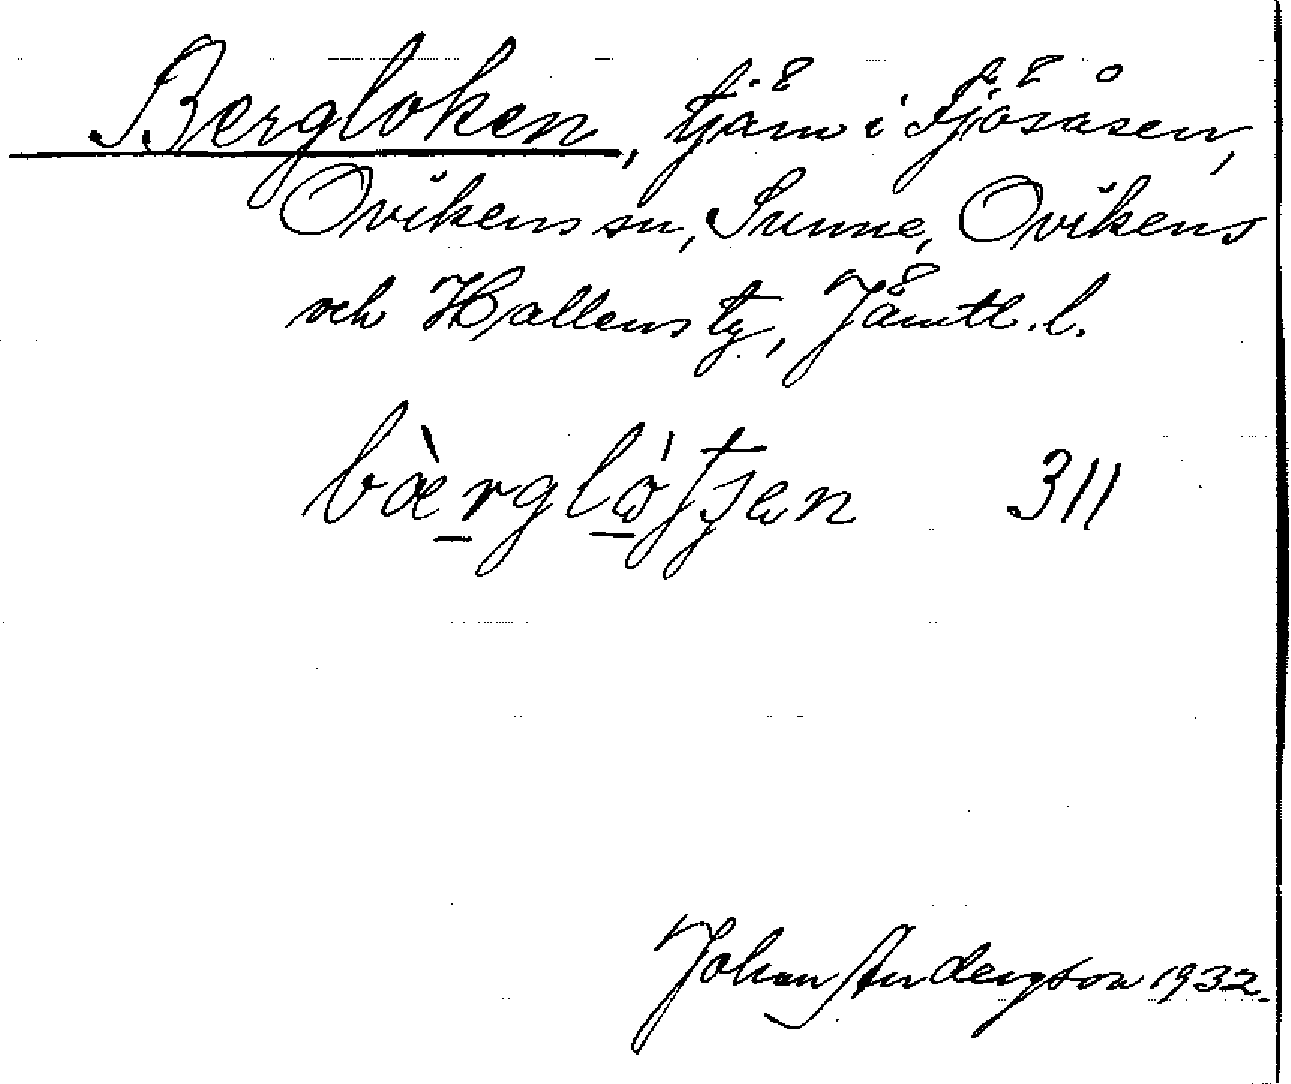 Bergloken, tjärn i Fjösåsen,
Ovikens sn, Sunne, Ovikens
och Hallens tg, Jämtl. l.
bæ̀rglótjen 311
Johan Anderson 1932.